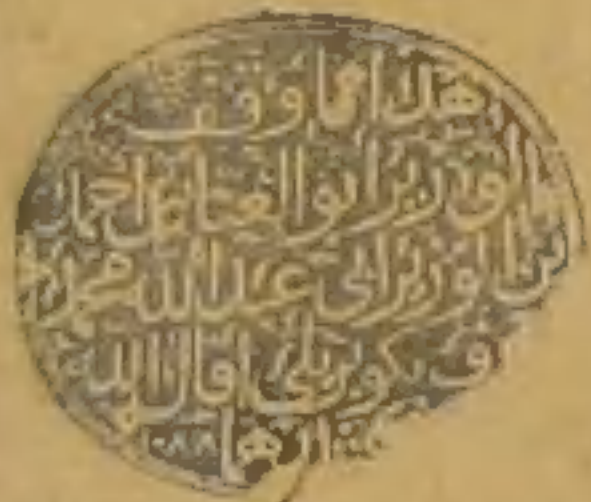 هذا مما وقف
الوزير ابو العباس احمد
ابن الوزير ابي عبد الله محمد
عرف بكوبريلي اقال الله
عثارهما ٠٨٨